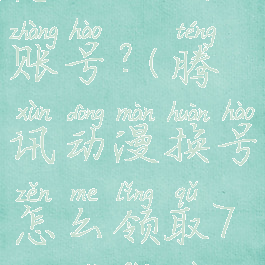 zhàng hào téng
账号?(腾
xùn dòng màn huàn hào
讯动漫换号
zěn me lǐng qǔ
怎么领取了